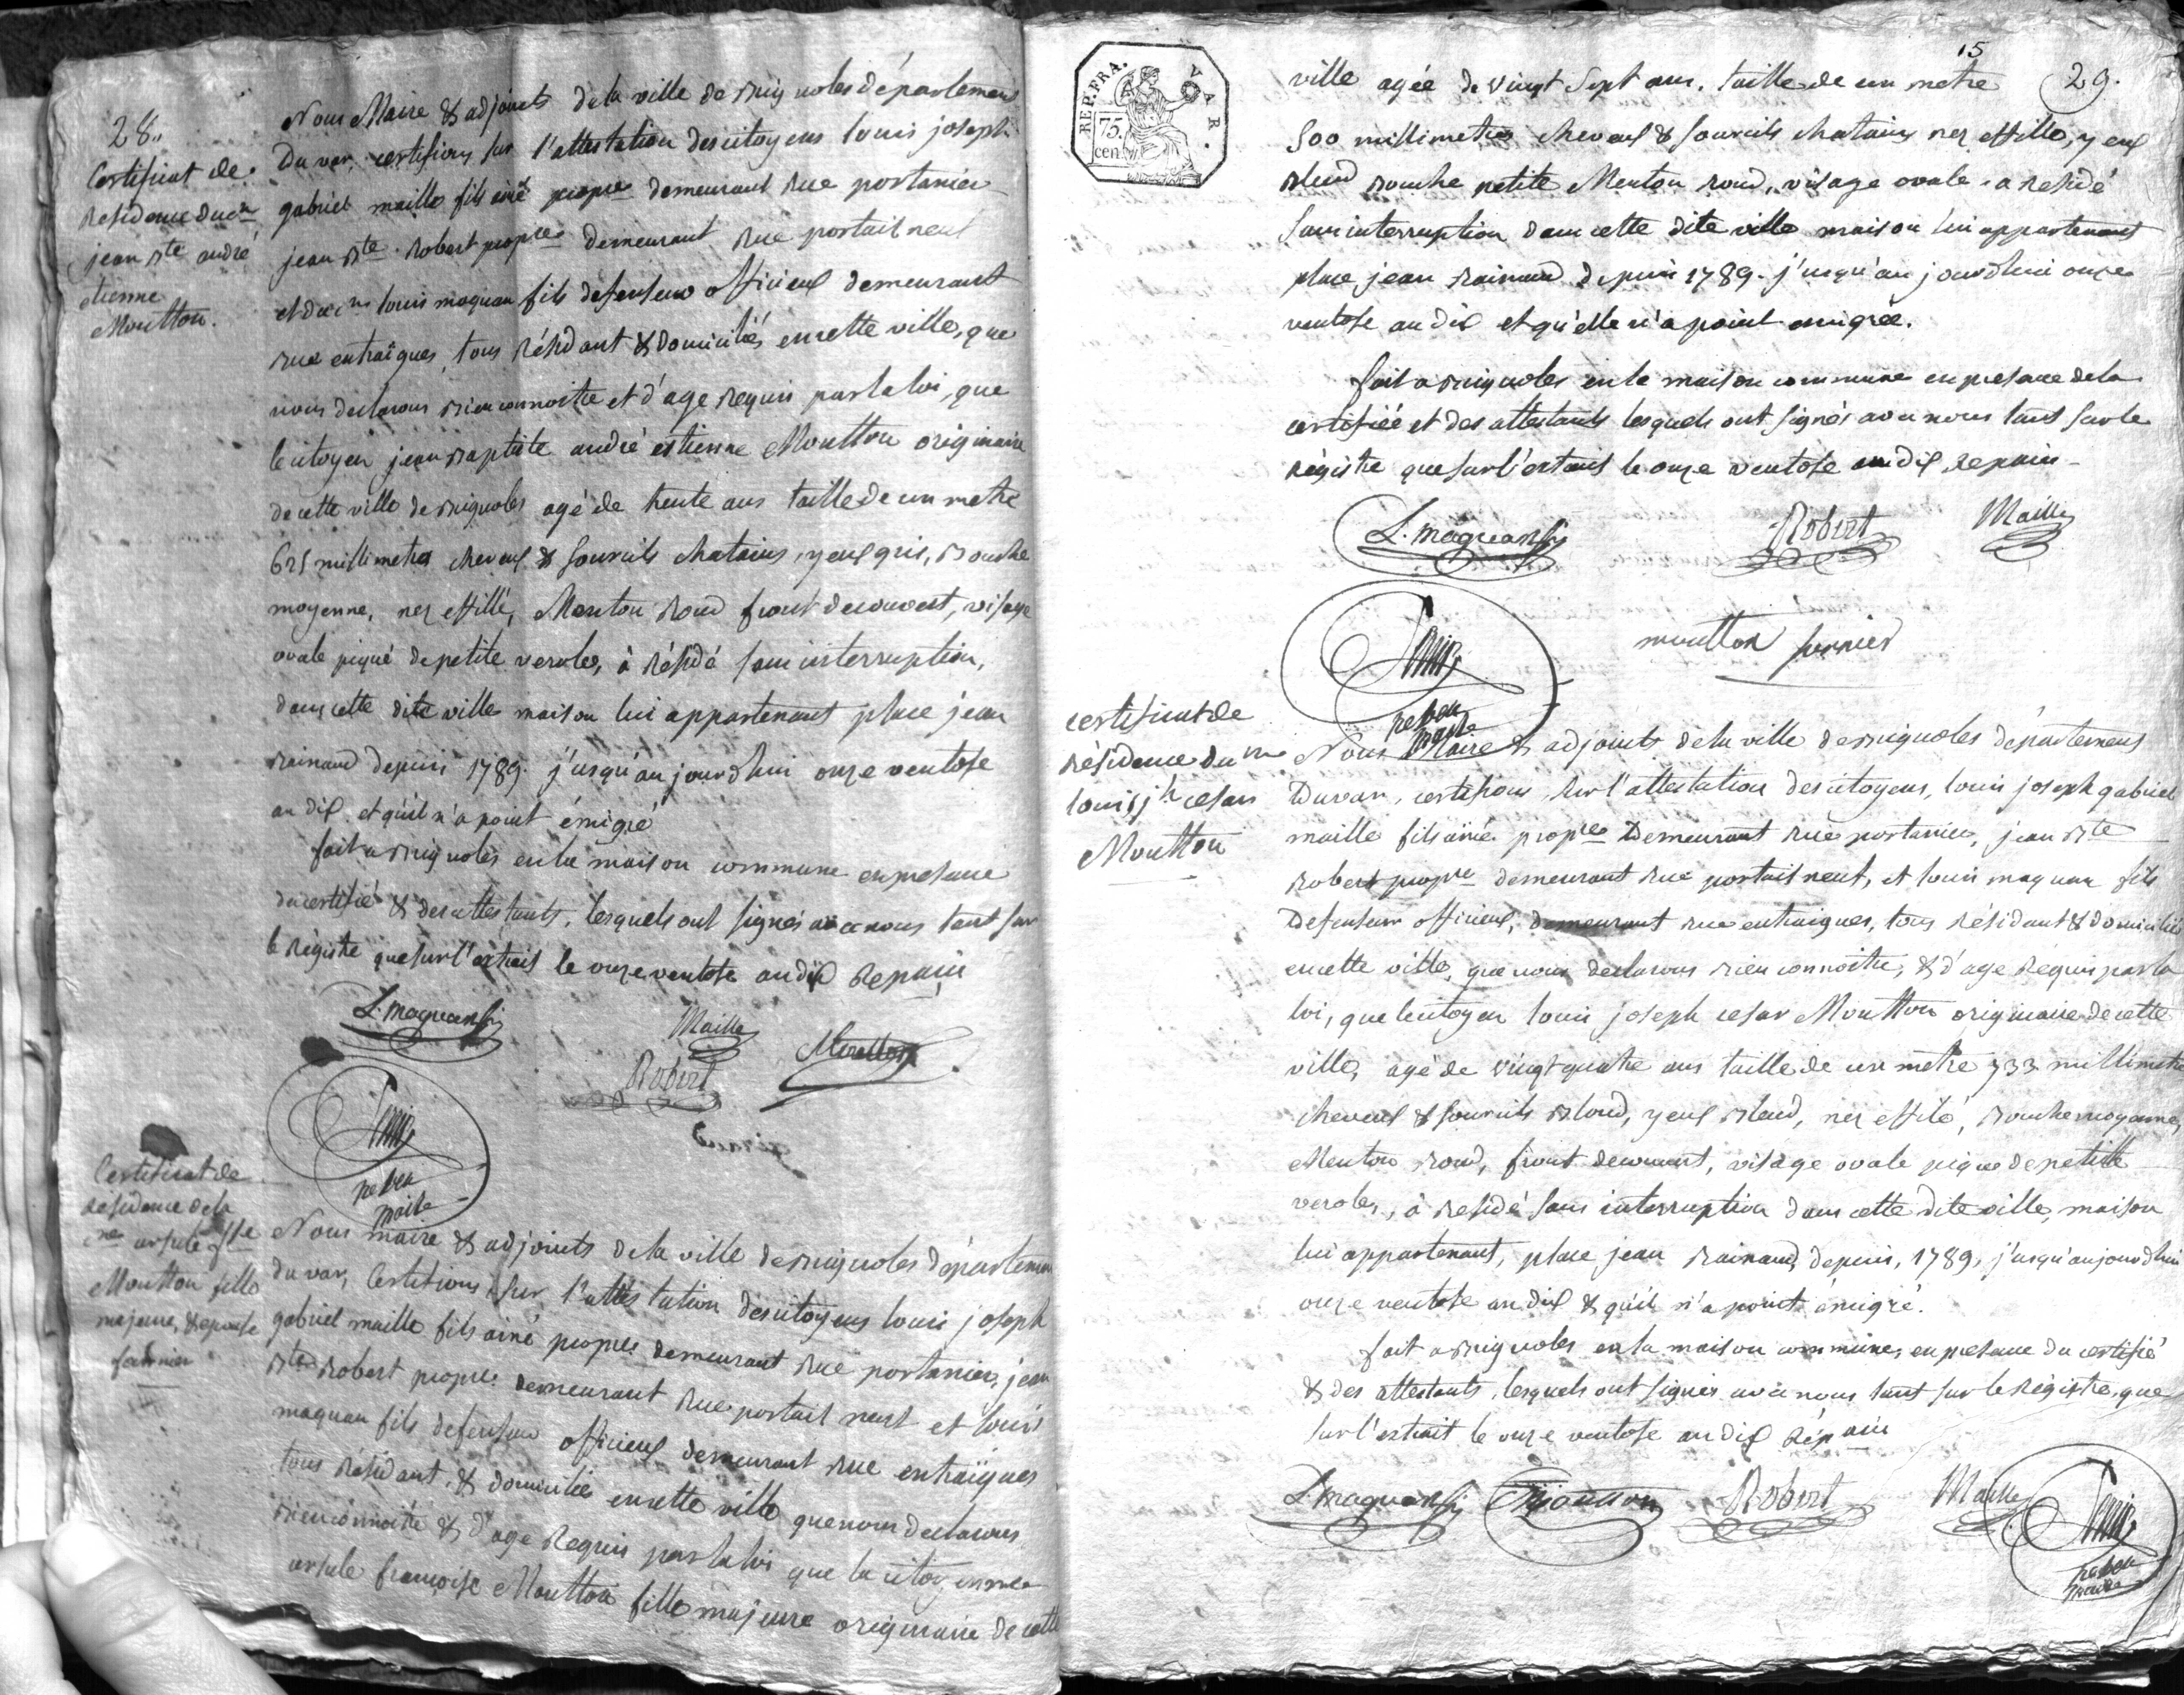 28.
Certificat de
Residence du cn
jean Bte andré
etienne
Moutton.
Nous Maire & adjoints de la ville de Brignoles département
Du var, certifions sur l'attestation des citoyens louis joseph
gabriel maille fils ainé propre demeurant Rue portanier
jean Bte Robert propre demeurant Rue portail neuf
et du cn louis maquan fils defenseur officieux demeurant
rue entraigues, tous Résidant & domiciliés en cette ville, que
nous declarons Bien connoitre et d'age Requis par la loi, que
le citoyen jean Baptiste andré estienne Moutton originaire
de cette ville de Brignoles agé de trente ans taille de un metre
625 millimetres cheveux & Sourcils chatains, yeux gris, Bouche
moyenne, nez effillé, Menton Rond front decouvert, visage
ovale piqué de petite verole, à Résidé sans interruption,
dans cette dite ville maison lui appartenant place jean
Rainaud depuis 1789. j'usqu'au jourd'hui onze ventose
an dix et qu'il n'a point émigré
fait a Brignoles en la maison commune en presence
du certifié & des attestants, lesquels ont signés avec nous tant sur
le Registre que sur l'extrait le onze ventose an dix Repain
L. maquan fils
Maille
Moutton
Robert
maire
Certificat de
Résidence de la
cne ursule fse
Moutton fille
majeure, & epouse
fournier
Nous maire & adjoints de la ville de Brignoles département
du var, Certifions sur l'attestation des citoyens louis joseph
gabriel maille fils ainé propre demeurant Rue portanier, jean
Bte Robert propre demeurant Rue portail neuf et louis
maquan fils defenseur officieux demeurant rue entraigues
tous Résidant & domiciliés en cette ville que nous declarons
Bien connoitre & d'age Requis par la loi que la citoyenne
ursule françoise Moutton fille majeure originaire de cette
REP. FRA.
VAR.
75.
cen.
15
29.
ville agée de vingt Sept ans, taille de un metre
500 millimetres cheveux & Sourcils chatains nez effillé, yeux
Bleud Bouche petite Menton rond, visage ovale a Résidé
Sans interruption dans cette dite ville maison lui appartenant
place jean Rainaud depuis 1789. j'usqu'au jourd'hui onze
ventose an dix et qu'elle n'a point emigrée.
fait a Brignoles en la maison commune en presence de la
certifiée et des attestants lesquels ont signés avec nous tant sur le
Régistre que sur l'extrait le onze ventose an dix Repain
L. maquan fils
Robert
Maille
moutton fournier
certificat de
Résidence du cn
louis jh cesar
Moutton
Nous Maire & adjoints de la ville de Brignoles département
Du var, certifions sur l'attestation des citoyens, louis joseph gabriel
maille fils ainé propre Demeurant Rue portanier, jean Bte
Robert propre demeurant Rue portail neuf, et louis maquan fils
Defenseur officieux, demeurant rue entraigues, tous Résidant & domiciliés
en cette ville, que nous declarons Bien connoitre, & d'age Requis par la
loi, que le citoyen louis joseph cesar Moutton originaire de cette
ville, agé de vingt quatre ans taille de un metre 733 millimetres
cheveux & sourcils Blond, yeux Bleud, nez effilé, Bouche moyenne,
Menton Rond, front decouvert, visage ovale piqué de petite
verole, à Résidé sans interruption dans cette dite ville, maison
lui appartenant, place jean Rainaud, depuis, 1789, j'usqu'aujourd'hui
onze ventose an dix & qu'il n'a point émigré.
fait a Brignoles en la maison commune, en presence du certifié
& des attestants, lesquels ont signés avec nous tant sur le Régistre que
sur l'extrait le onze ventose an dix Répain
L. maquan fils
Moutton
Robert
Maille